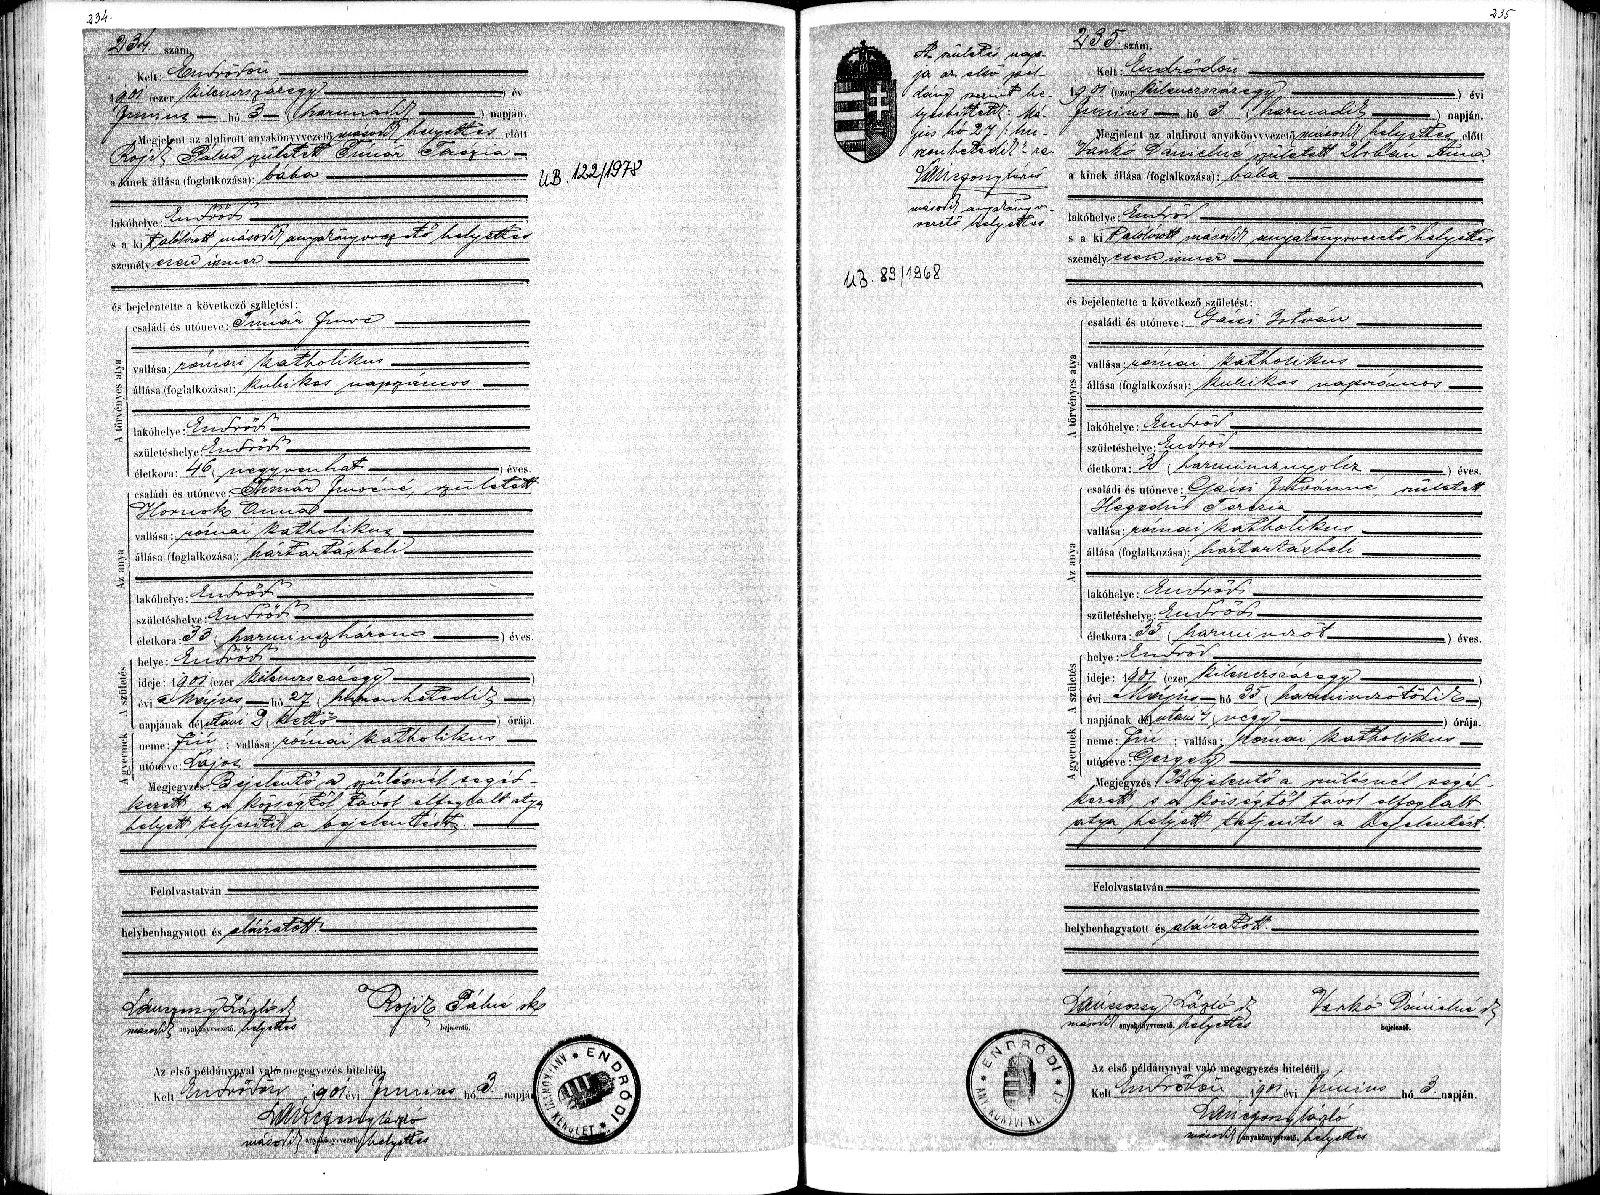 234.
234. szám.
Kelt: Endrődön,
1901 (ezer kilenczszázegy) év
Junius hó 3 (harmadik) napján.
Megjelent az alulirott anyakönyvvezető második helyettes előtt
Rojik Pálné született Timár Terézia
a kinek állása (foglalkozása): bába
lakóhelye: Endrőd
s a ki alólirott második anyakönyvvezető helyettes
személyesen ismer
és bejelentette a következő születést:
A törvényes atya
családi és utóneve: Timár Imre
vallása: római katholikus
állása (foglalkozása): kubikos napszámos
lakóhelye: Endrőd
születéshelye: Endrőd
életkora: 46 (negyvenhat) éves.
Az anya
családi és utóneve: Timár Imréné, született
Hornok Anna
vallása: római katholikus
állása (foglalkozása): háztartásbeli
lakóhelye: Endrőd
születéshelye: Endrőd
életkora: 33 (harminczhárom) éves.
A születés
helye: Endrőd
ideje: 1901 (ezer kilenczszázegy)
évi Május hó 27 (huszonhetedik)
napjának délutáni 2 (kettő) órája.
A gyermek
neme: fiú ; vallása: római katholikus
utóneve: Lajos
Megjegyzés: Bejelentő a szülésnél segéd-
kezett s a községtől távol elfoglalt atya
helyett teljesíti a bejelentést.
Felolvastatván
helybenhagyatott és aláiratott.
Lánczony László sk
második anyakönyvvezető. helyettes
Rojik Pálné sk
bejelentő.
Az első példánynyal való megegyezés hiteléül.
Kelt Endrődön, 1901 évi Junius hó 3 napján
Lánczony László
második anyakönyvvezető. helyettes
ENDRŐDI
UB. 122/1978
235
A születés nap-
ja az első pél-
dány szerint he-
lyesbittetett Má-
jus hó 27 /: hu-
szonhetedik :/ re
Lánczony László
második anyakönyv-
vezető helyettes
UB. 89/1968
235 szám.
Kelt: Endrődön
1901 (ezer kilenczszázegy) évi
Junius hó 3 (harmadik) napján.
Megjelent az alulirott anyakönyvvezető második helyettes előtt
Varkó Dánielné született Urbán Anna
a kinek állása (foglalkozása): bába
lakóhelye: Endrőd
s a ki alólirott második anyakönyvvezető helyettes
személyesen ismer
és bejelentette a következő születést:
A törvényes atya
családi és utóneve: Gácsi István
vallása: római katholikus
állása (foglalkozása): kubikos napszámos
lakóhelye: Endrőd
születéshelye: Endrőd
életkora: 38 (harmincznyolcz) éves.
Az anya
családi és utóneve: Gácsi Istvánné, született
Hegedűs Terézia
vallása: római katholikus
állása (foglalkozása): háztartásbeli
lakóhelye: Endrőd
születéshelye: Endrőd
életkora: 35 (harminczöt) éves.
A születés
helye: Endrőd
ideje: 1901 (ezer kilenczszázegy)
évi Május hó 35 (harminczötödik)
napjának délutáni 4 (négy) órája.
A gyermek
neme: fiú ; vallása: római katholikus
utóneve: Gergely
Megjegyzés: Bejelentő a szülésnél segéd-
kezett s a községtől távol elfoglalt
atya helyett teljesíti a bejelentést.
Felolvastatván
helybenhagyatott és aláiratott.
Lánczony László sk
második anyakönyvvezető. helyettes
Varkó Dánielné sk
bejelentő.
Az első példánynyal való megegyezés hiteléül.
Kelt Endrődön 1901 évi Junius hó 3 napján.
Lánczony László
második anyakönyvvezető. helyettes
ENDRŐDI